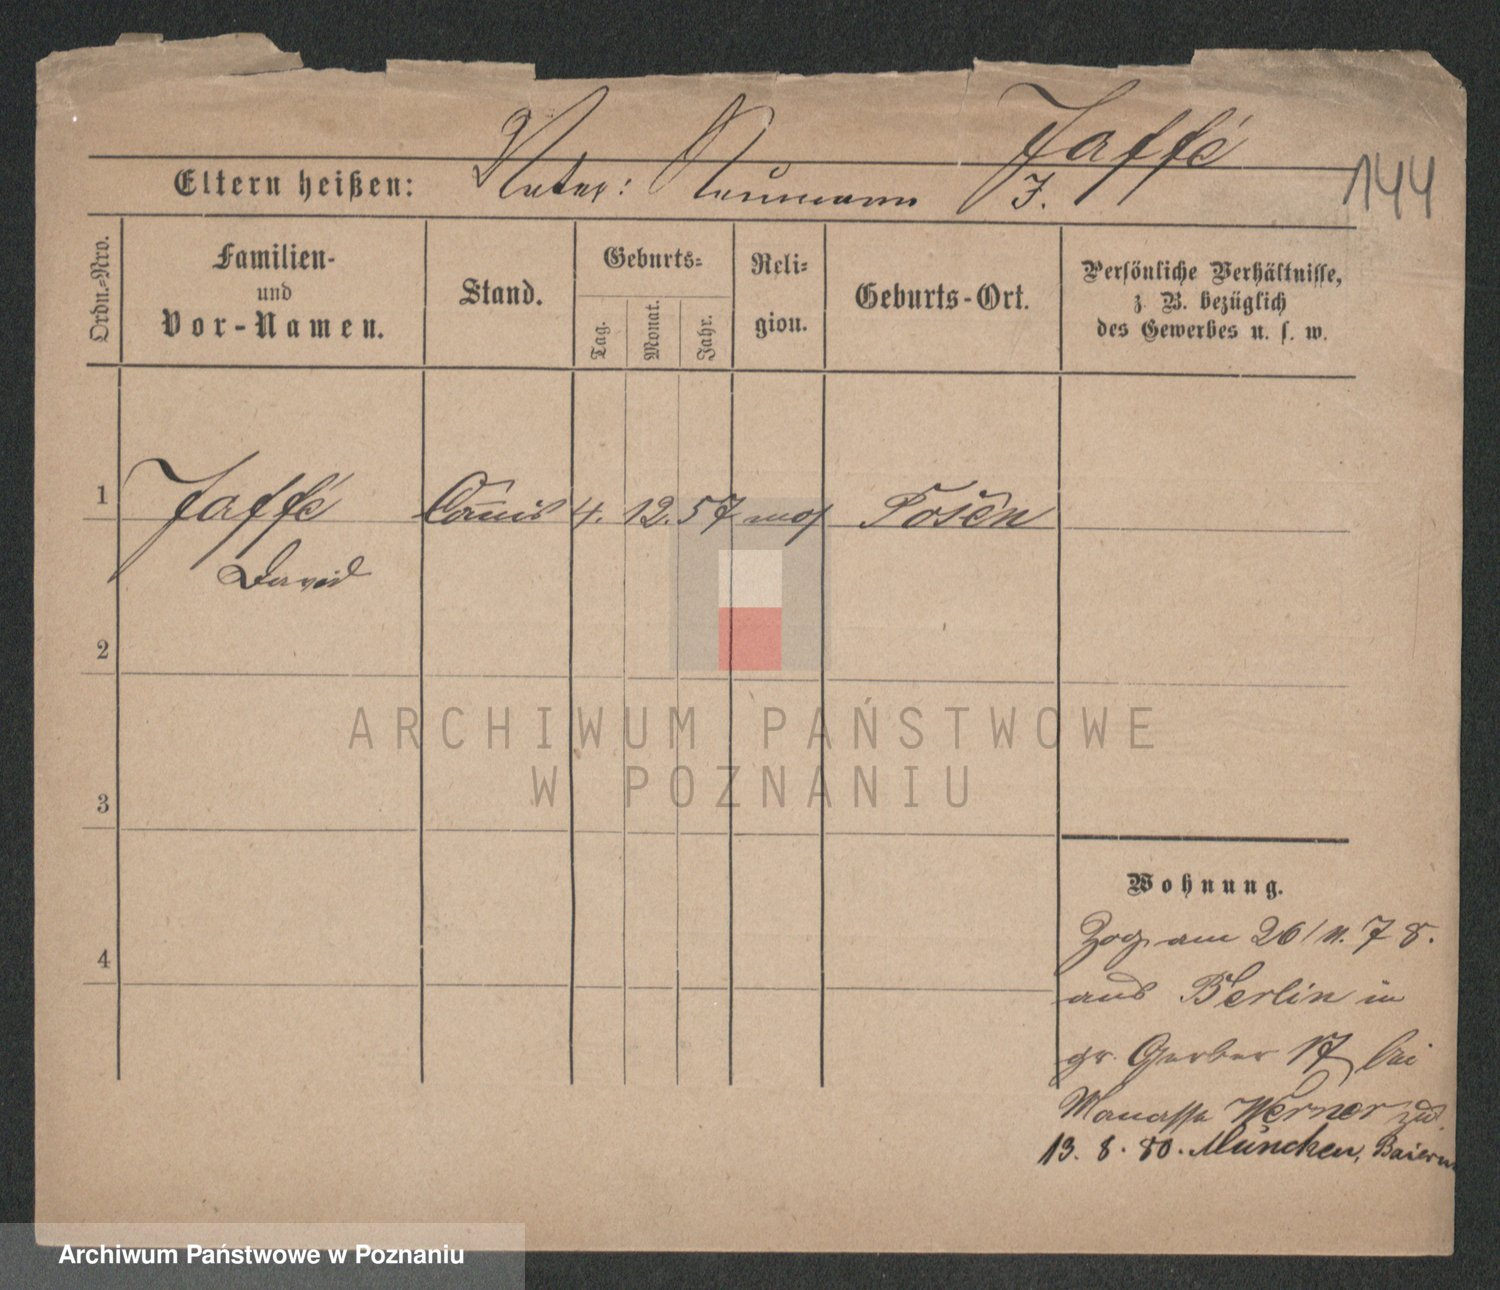 Jaffé
144
Eltern heißen: Vater: Neumann J.
Ordn.-Nro.
Familien-
und
Vor-Namen.
Stand.
Geburts-
Tag.
Monat.
Jahr.
Reli-
gion.
Geburts-Ort.
Persönliche Verhältnisse,
z. B. bezüglich
des Gewerbes u. s. w.
1 Jaffé Comis 4. 12. 57 mos Posen
David
2
3
4
Wohnung.
Zog am 26/11. 78.
aus Berlin in
gr. Gerber 17 bei
Manasse Werner zu.
13. 8. 80. München, Baiern
ARCHIWUM PAŃSTWOWE
W POZNANIU
Archiwum Państwowe w Poznaniu